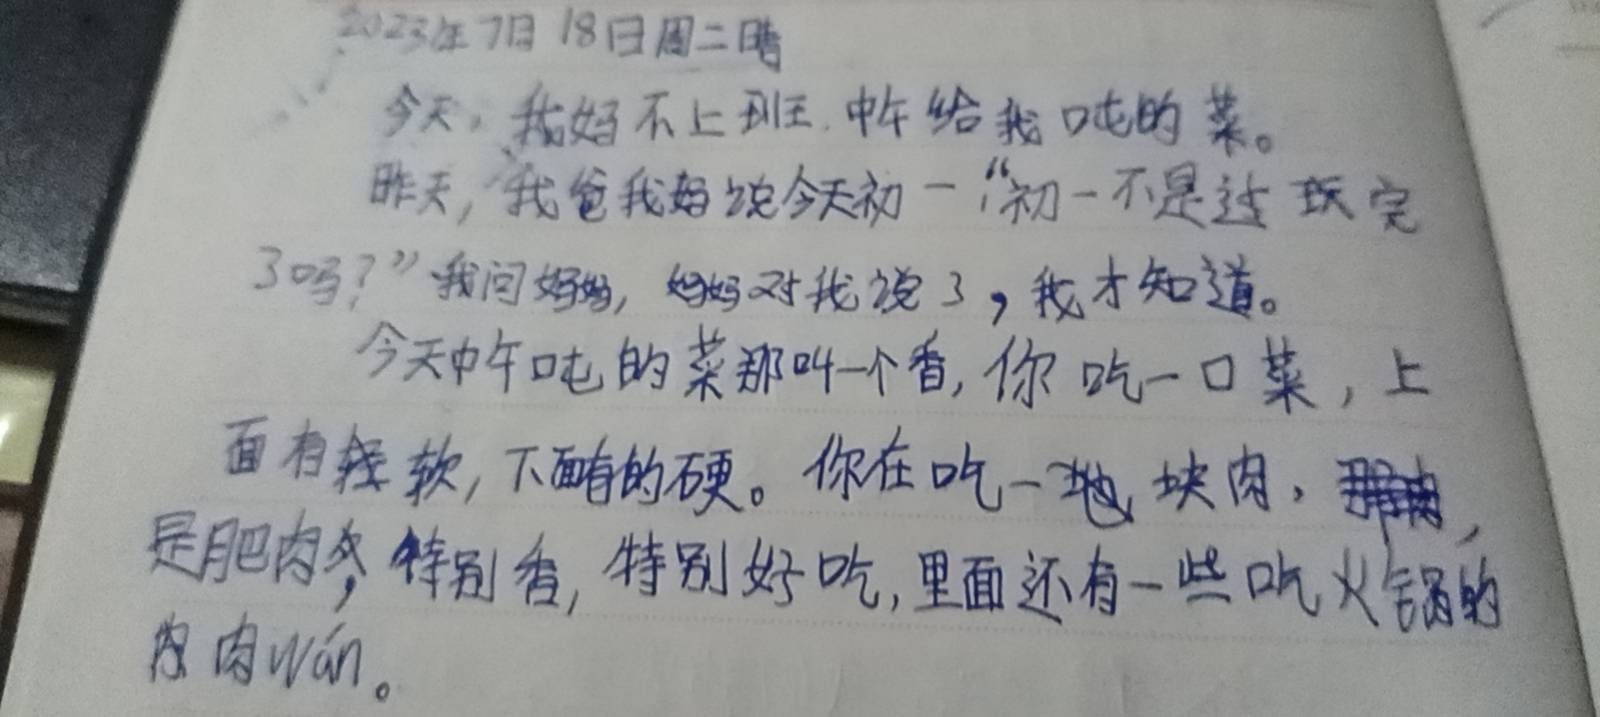 2023年7月18日周二晴
今天，我妈不上班.中午给我吨的菜。
昨天，我爸我妈说今天初一，“初一不是过 玩完
了吗？”我问妈妈，妈妈对我说了，我才知道。
今天中午吨的菜那叫一个香，你吃一口菜，上
面有 软，下面有的硬。你在吃一 块肉，
是肥肉，特别香，特别好吃，里面还有一些吃火锅的
肉wán。